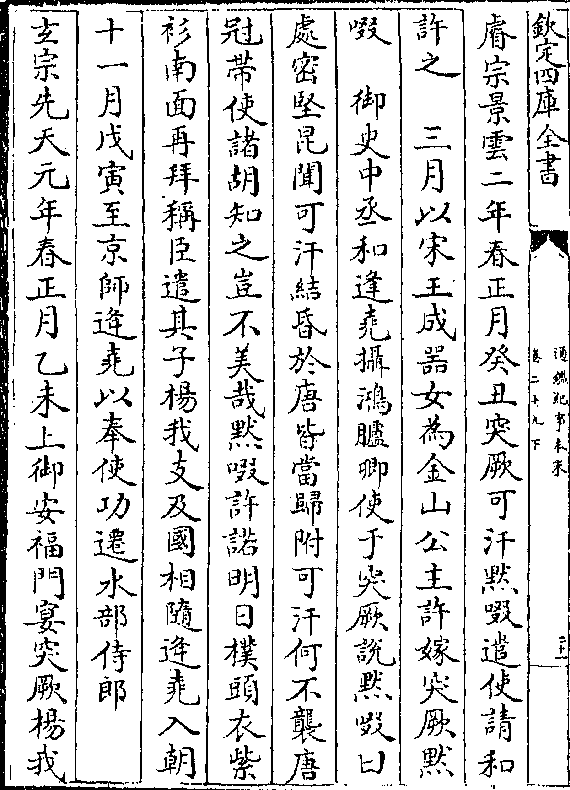 欽定四庫全書
通鑑紀事本末
卷二十九下
睿宗景雲二年春正月癸丑突厥可汗默啜遣使請和
許之　三月以宋王成器女為金山公主許嫁突厥默
啜　御史中丞和逢堯攝鴻臚卿使于突厥說默啜曰
處密堅昆聞可汗結昏於唐皆當歸附可汗何不襲唐
冠帶使諸胡知之豈不美哉默啜許諾明日襆頭衣紫
衫南面再拜稱臣遣其子楊我支及國相隨逢堯入朝
十一月戊寅至京師逢堯以奉使功遷水部侍郎
玄宗先天元年春正月乙未上御安福門宴突厥楊我